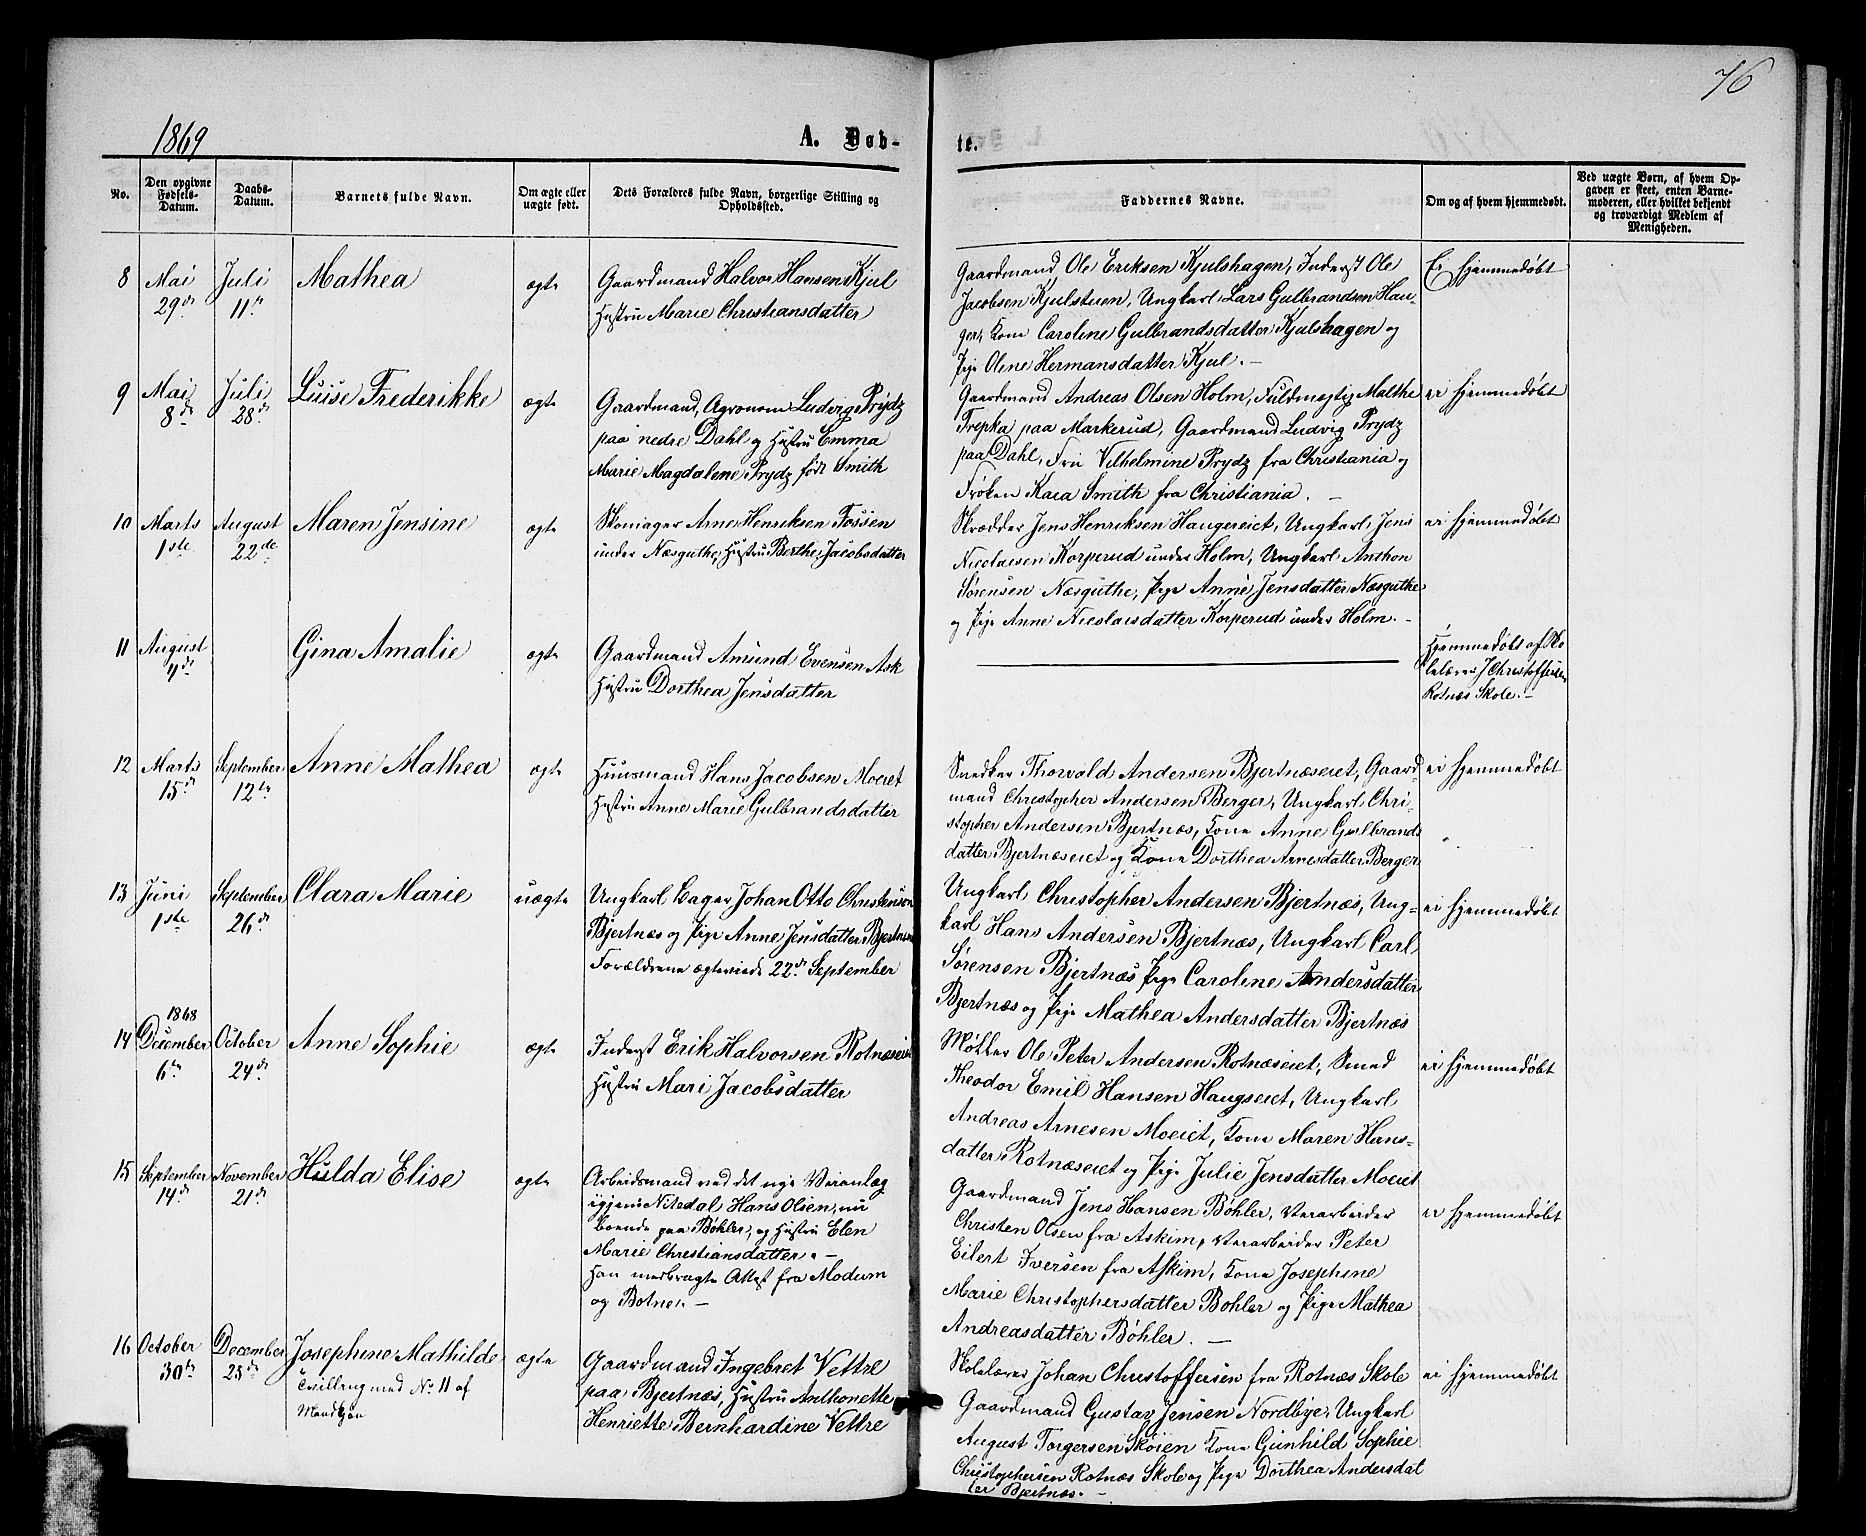 76
1869
A. Døb-
te.
No.
Den opgivne Fødsels-Datum.
Daabs-Datum.
Barnets fulde Navn.
Om ægte eller uægte født.
Dets Forældres fulde Navn, borgerlige Stilling og Opholdssted.
Faddernes Navne.
Om og af hvem hjemmedøbt.
Ved uægte Børn, af hvem Opgaven er skeet, enten Barnemoderen, eller hvilket bekjendt og troværdigt Medlem af Menigheden.
8
Mai 29de
Juli 11te
Mathea
ægte
Gaardmand Halvor Hansen Kjul
Hustru Marie Christiansdatter
Gaardmand Ole Eriksen Kjulshagen, Inderst Ole
Jacobsen Kjulstuen, Ungkarl Lars Gulbrandsen Hau-
ger, Kone Caroline Gulbrandsdatter Kjulshagen og
Pige Oline Hermansdatter Kjul.-
Ei hjemmedøbt
9
Mai 8de
Juli 28de
Luise Frederikke
ægte
Gaardmand, Agronom Ludvig Prydz
paa nedre Dahl og Hustru Emma
Marie Magdalene Prydz født Smith
Gaardmand Andreas Olsen Holm, Fuldmægtig Malthe
Trepka paa Markerud, Gaardmand Ludvig Prydz
paa Dahl, Fru Vilhelmine Prydz fra Christiania og
Frøken Kaia Smith fra Christiania. -
ei hjemmedøbt
10
Marts 1ste
August 22de
Maren Jensine
ægte
Skomager Arne Henriksen Fossen
under Næsguthe, Hustru Berthe Jacobsdatter
Skrædder Jens Henriksen Haugereiet, Ungkarl Jens
Nicolaisen Korperud under Holm, Ungkarl Anthon
Sørensen Næsguthe, Pige Anne Jensdatter Næsguthe
og Pige Anne Nicolaisdatter Korperud under Holm.-
ei hjemmedøbt
11
August 4de
Gina Amalie
ægte
Gaardmand Amund Evensen Ask
Hustru Dorthea Jensdatter
Hjemmedøbt af Sko-
lelærer J Christoffersen
Rotnæs Skole.-
12
Marts 15de
September 12te
Anne Mathea
ægte
Huusmand Hans Jacobsen Moeiet
Hustru Anne Marie Gulbrandsdatter
Snedker Thorvald Andersen Bjertnæseiet, Gaard
mand Christopher Andersen Berger, Ungkarl Chri-
stopher Andersen Bjertnæs, Kone Anne Gulbrands
datter Bjertnæseiet og Kone Dorthea Arnesdatter Berger
ei hjemmedøbt
13
Juni 1ste
September 26de
Clara Marie
uægte
Ungkarl Bager Johan Otto Christensen
Bjertnæs og Pige Anne Jensdatter Bjertnæs
Forældrene ægteviede 22de September
Ungkarl Christopher Andersen Bjertnæs, Ung-
karl Hans Andersen Bjertnæs, Ungkarl Carl
Sørensen Bjertnæs Pige Caroline Andersdatter
Bjertnæs og Pige Mathea Andersdatter Bjertnæs
ei hjemmedøbt
14
1868
December 6te
October 24de
Anne Sophie
ægte
Inderst Erik Halvorsen Rotnæseiet
Hustru Mari Jacobsdatter
Møller Ole Peter Andersen Rotnæseiet, Smed
Theodor Emil Hansen Haugseiet, Ungkarl
Andreas Arnesen Moeiet, Kone Maren Hans-
datter Rotnæseiet og Pige Julie Jensdatter Moeiet
ei hjemmedøbt
15
September 14de
November 21de
Hulda Elise
ægte
Arbeidsmand ved det nye Veianlæg
igjennem Nitedal Hans Olsen, nu
boende paa Bøhler, og Hustru Elen
Marie Christiansdatter. -
Han medbragte Attest fra Modum
og Botne. -
Gaardmand Jens Hansen Bøhler, Veiarbeider
Christen Olsen fra Askim, Veiarbeider Peter
Eilert Iversen fra Askim, Kone Josephine
Marie Christophersdatter Bøhler og Pige Mathea
Andreasdatter Bøhler. -
ei hjemmedøbt
16
October 30te
December 25de
Josephine Mathilde
Tvilling med No 11 af
Mandkjøn
ægte
Gaardmand Ingebret Vettre
paa Bjertnæs, Hustru Anthonette
Henriette Bernhardine Vettre
Skolelærer Johan Christoffersen fra Rotnæs Skole
Gaardmand Gustav Jensen Nordbye, Ungkarl
August Torgersen Skøien Kone Gunhild Sophie
Christophersen Rotnæs Skole og Pige Dorthea Andersdat
ter Bjertnæs.-
ei hjemmedøbt